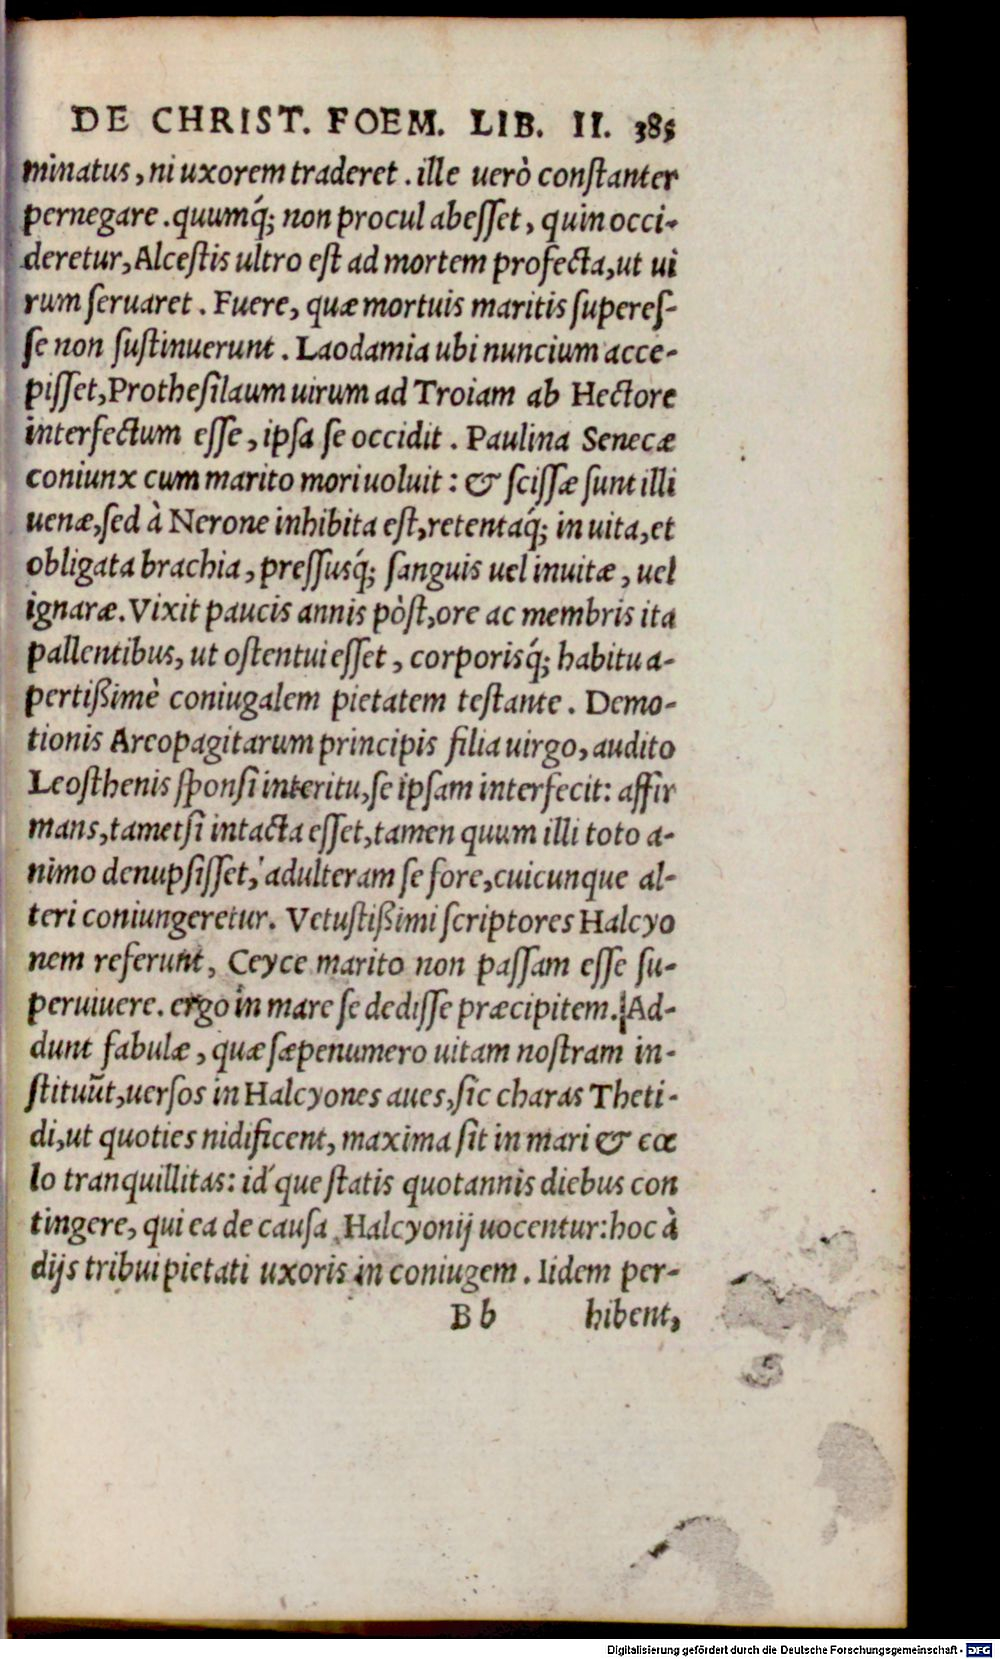 DE CHRIST. FOEM. LIB. II. 385
minatus, ni uxorem traderet. ille uerò conſtanter
pernegare. quumq́; non procul abeſſet, quin occi-
deretur, Alceſtis ultro eſt ad mortem profecta, ut ui
rum ſeruaret. Fuere, quæ mortuis maritis ſupereſ-
ſe non ſuſtinuerunt. Laodamia ubi nuncium acce-
piſſet, Protheſilaum uirum ad Troiam ab Hectore
interfectum eſſe, ipſa ſe occidit. Paulina Senecæ
coniunx cum marito mori uoluit: & ſciſſæ ſunt illi
uenæ, ſed à Nerone inhibita eſt, retentaq́; in uita, et
obligata brachia, preſſusq́; ſanguis uel inuitæ, uel
ignaræ. Vixit paucis annis pòſt, ore ac membris ita
pallentibus, ut oſtentui eſſet, corporisq́; habitu a-
pertißimè coniugalem pietatem teſtante. Demo-
tionis Areopagitarum principis filia uirgo, audito
Leoſthenis ſponſi interitu, ſe ipſam interfecit: affir
mans, tametſi intacta eſſet, tamen quum illi toto a-
nimo denupſiſſet, adulteram ſe fore, cuicunque al-
teri coniungeretur. Vetuſtißimi ſcriptores Halcyo
nem referunt, Ceyce marito non paſſam eſſe ſu-
peruiuere. ergo in mare ſe dediſſe præcipitem. Ad-
dunt fabulæ, quæ ſæpenumero uitam noſtram in-
ſtituũt, uerſos in Halcyones aues, ſic charas Theti-
di, ut quoties nidificent, maxima ſit in mari & cœ
lo tranquillitas: id́que ſtatis quotannis diebus con
tingere, qui ea de cauſa Halcyonij uocentur: hoc à
dijs tribui pietati uxoris in coniugem. Iidem per-
B b hibent,
Digitalisierung gefördert durch die Deutsche Forschungsgemeinschaft - DFG